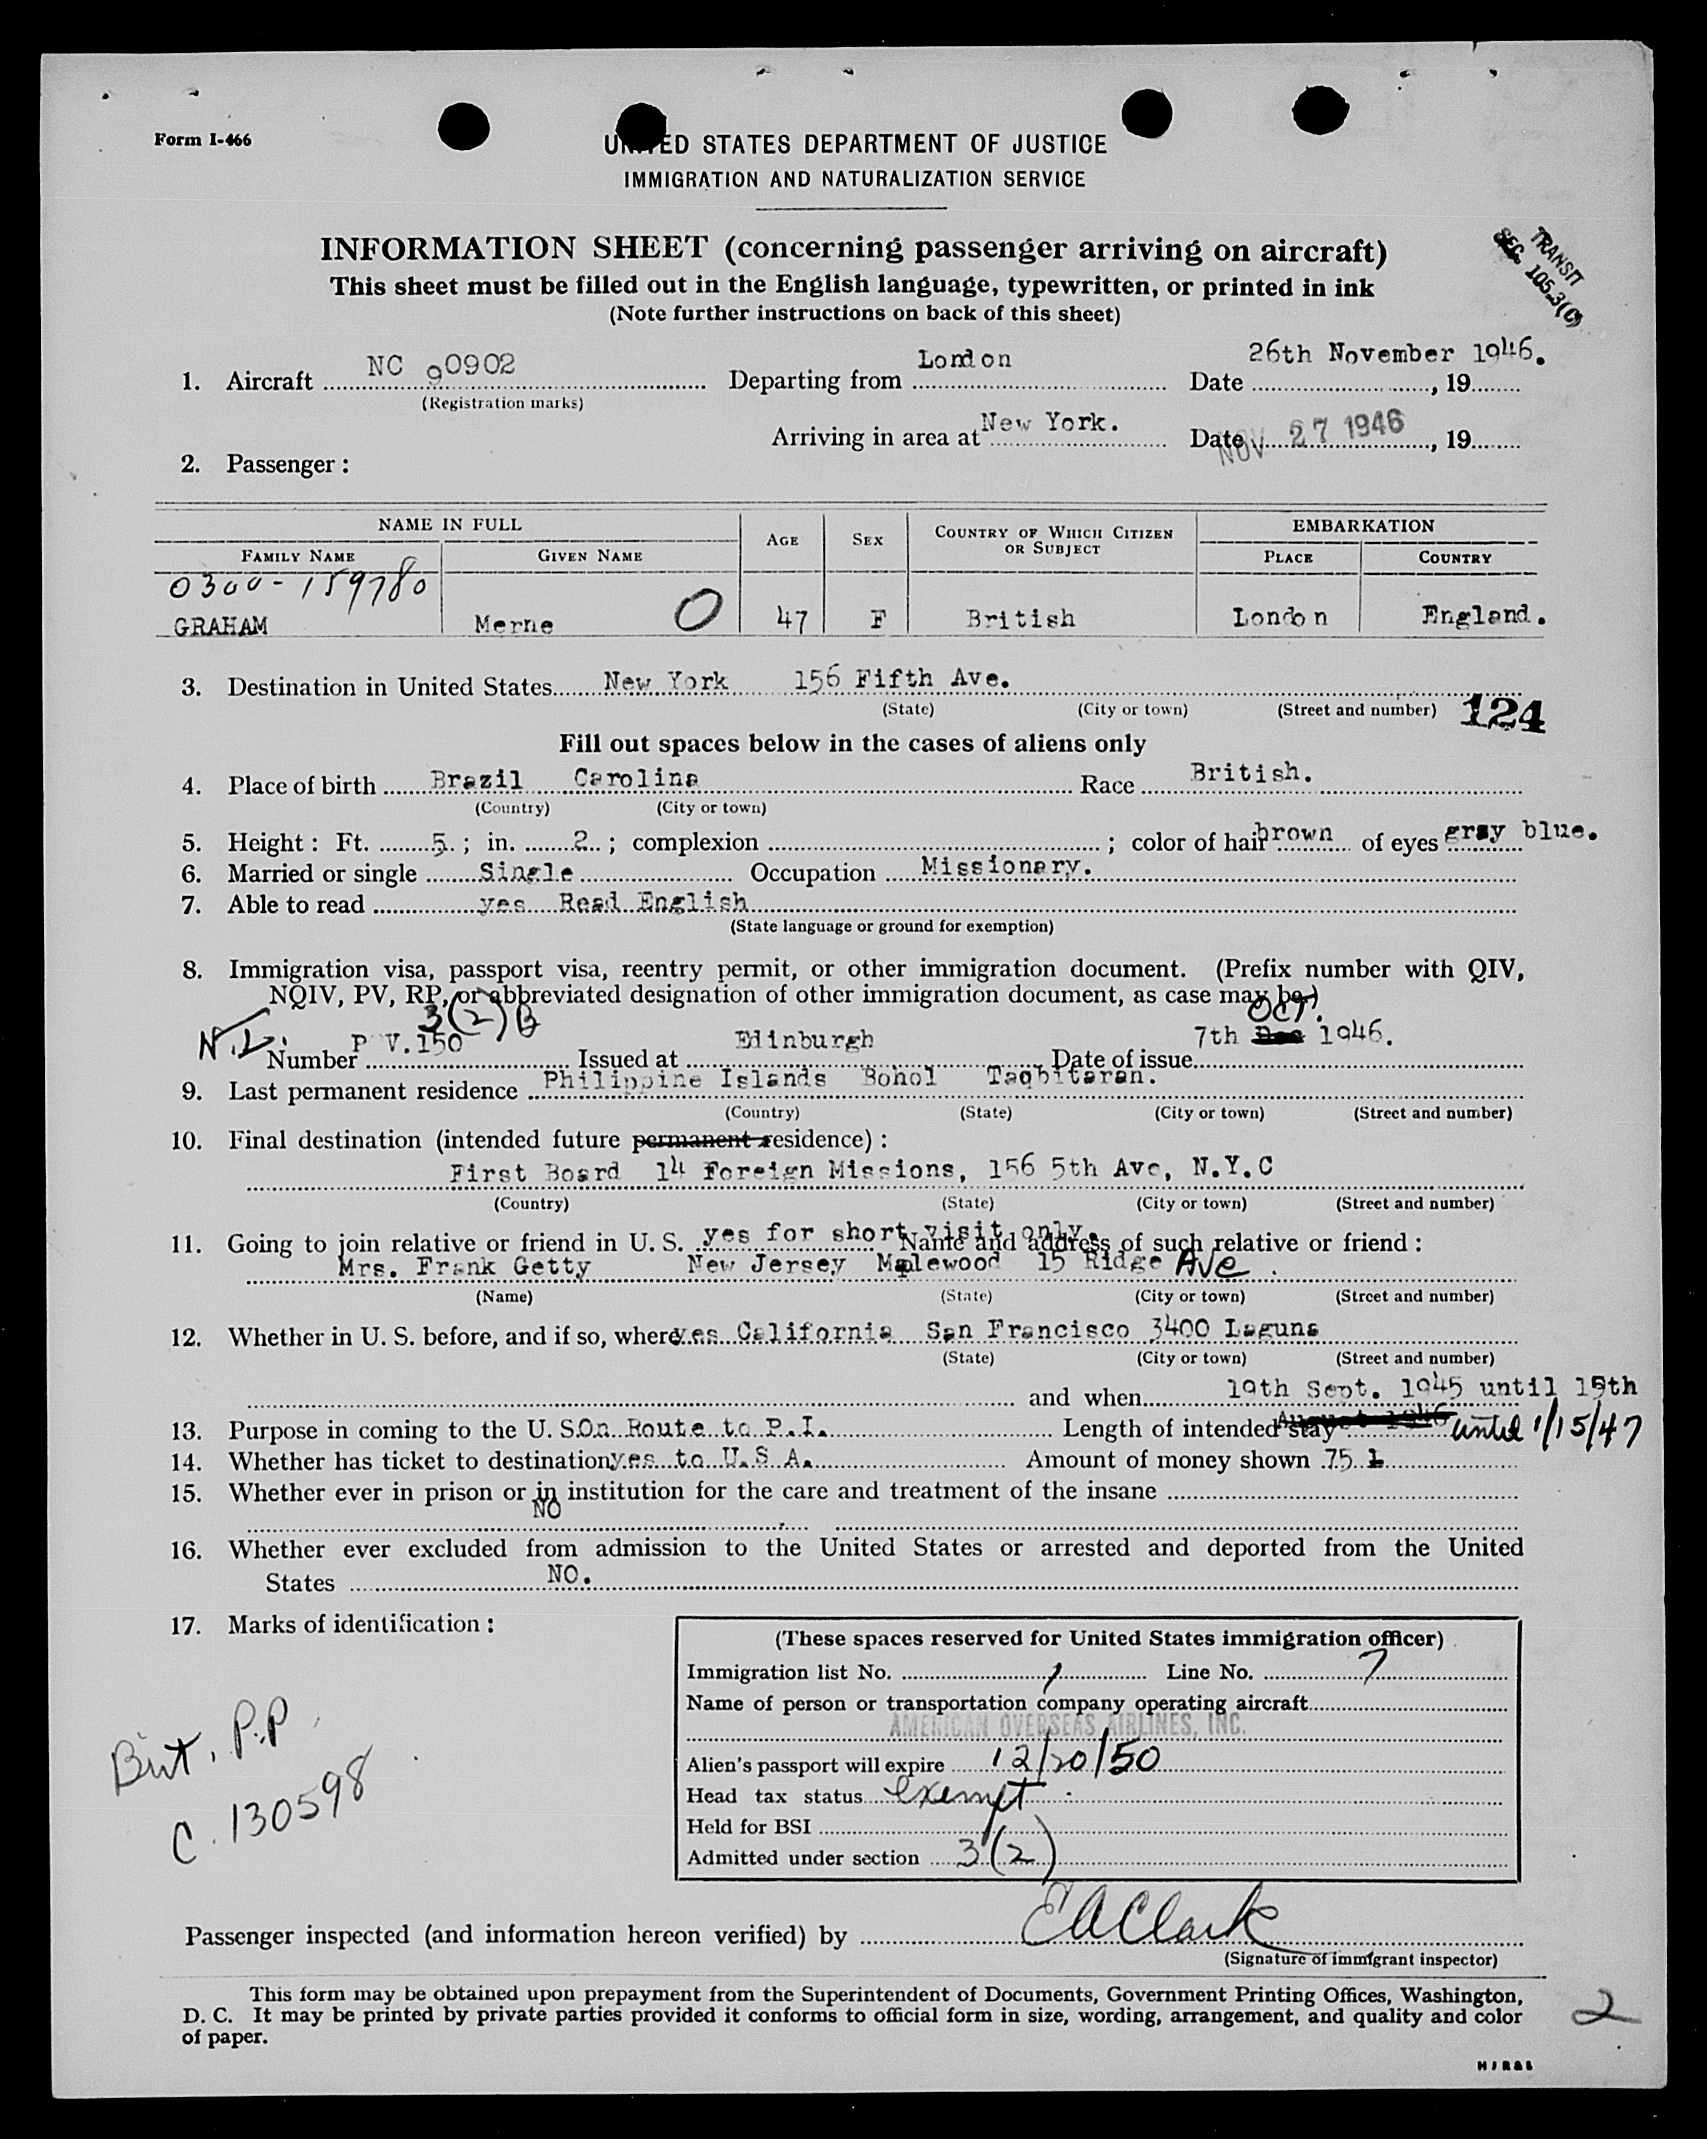 Form I-466
UNITED STATES DEPARTMENT OF JUSTICE
IMMIGRATION AND NATURALIZATION SERVICE
TRANSIT
SEC. 105.3(C)
INFORMATION SHEET (concerning passenger arriving on aircraft)
This sheet must be filled out in the English language, typewritten, or printed in ink
(Note further instructions on back of this sheet)
1. Aircraft NC 90902 Departing from London Date 26th November 1946. , 19
(Registration marks)
Arriving in area at New York. Date NOV 27 1946 , 19
2. Passenger:
NAME IN FULL AGE SEX COUNTRY OF WHICH CITIZEN OR SUBJECT EMBARKATION
FAMILY NAME GIVEN NAME PLACE COUNTRY
0300-159780
GRAHAM Merne O 47 F British London England.
3. Destination in United States New York 156 Fifth Ave.
(State) (City or town) (Street and number) 124
Fill out spaces below in the cases of aliens only
4. Place of birth Brazil Carolina Race British.
(Country) (City or town)
5. Height: Ft. 5 ; in. 2 ; complexion ; color of hair brown of eyes gray blue.
6. Married or single Single Occupation Missionary.
7. Able to read yes Read English
(State language or ground for exemption)
8. Immigration visa, passport visa, reentry permit, or other immigration document. (Prefix number with QIV,
NQIV, PV, RP, or abbreviated designation of other immigration document, as case may be.)
3(2) B OCT.
N.L. Number P V.150 Issued at Edinburgh Date of issue 7th Dec 1946.
9. Last permanent residence Philippine Islands Bohol Taqbitaran.
(Country) (State) (City or town) (Street and number)
10. Final destination (intended future permanent residence):
First Board 14 Foreign Missions, 156 5th Ave, N.Y.C
(Country) (State) (City or town) (Street and number)
11. Going to join relative or friend in U. S. yes for short visit only. Name and address of such relative or friend:
Mrs. Frank Getty New Jersey Maplewood 15 Ridge Ave.
(Name) (State) (City or town) (Street and number)
12. Whether in U. S. before, and if so, where yes California San Francisco 3400 Laguna
(State) (City or town) (Street and number)
and when 19th Sept. 1945 until 15th
13. Purpose in coming to the U. S. On Route to P.I. Length of intended stay August 1946 until 1/15/47
14. Whether has ticket to destination yes to U.S A. Amount of money shown 75
15. Whether ever in prison or in institution for the care and treatment of the insane
NO
16. Whether ever excluded from admission to the United States or arrested and deported from the United
States NO.
17. Marks of identification:
Brit. P.P
C. 130598
(These spaces reserved for United States immigration officer)
Immigration list No. 1 Line No. 7
Name of person or transportation company operating aircraft
AMERICAN OVERSEAS AIRLINES, INC.
Alien's passport will expire 12/20/50
Head tax status exempt
Held for BSI
Admitted under section 3(2)
Passenger inspected (and information hereon verified) by E A Clark
(Signature of immigrant inspector)
This form may be obtained upon prepayment from the Superintendent of Documents, Government Printing Offices, Washington,
D. C. It may be printed by private parties provided it conforms to official form in size, wording, arrangement, and quality and color
of paper.
2